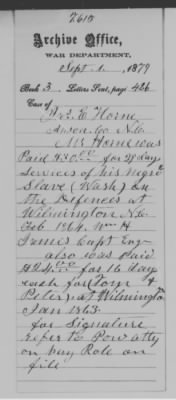 2618
Archive Office,
WAR DEPARTMENT,
Sept. 1, 1879
Book 3 Letters Sent, page 426
Case of
E. Horne
Anson Co N.C.
Mr Horne was
Paid $30.00 for 29 days
services of his Negro
Slave (Wash) on
the Defences at
Wilmington N.C.
Feb 1864. Wm H
James Capt Eng
also was Paid
$24.00 for 16 days
each for (Tom &
Peter) at Wilmington
Jan 1863
for Signature
refer to Pow atty
on Pay Role on
file